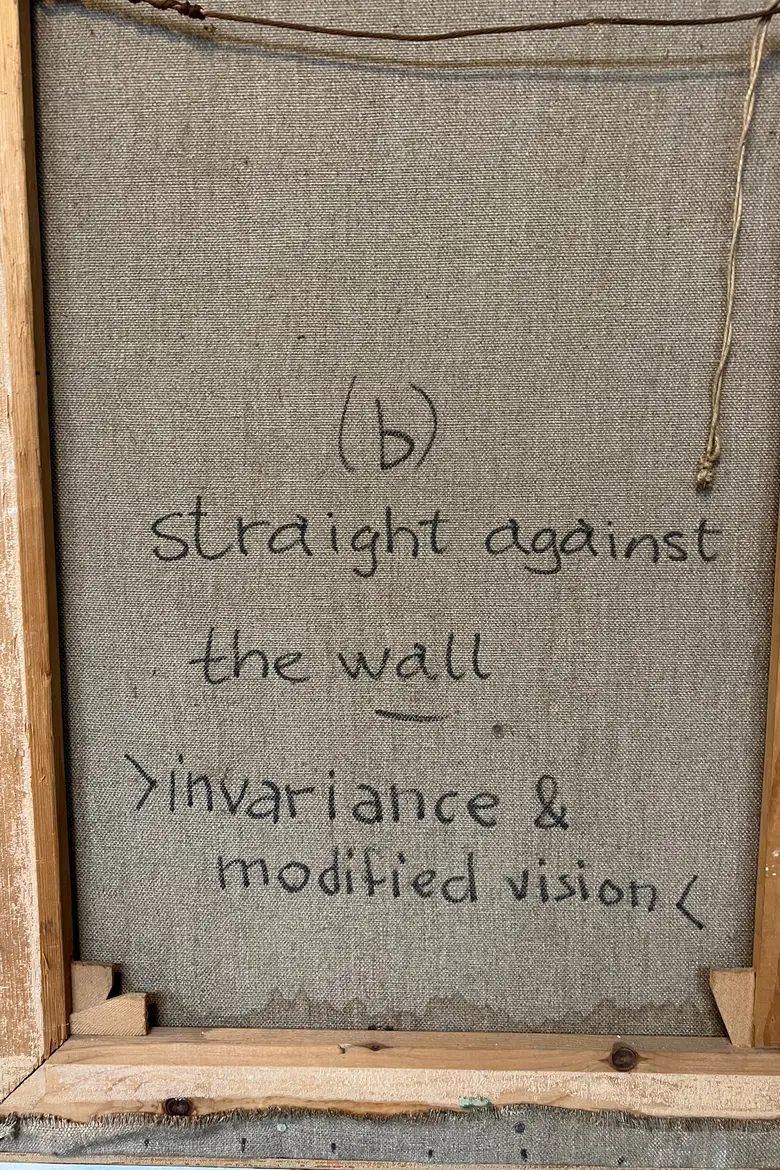 (b)
straight against
the wall
>invariance &
modified vision<